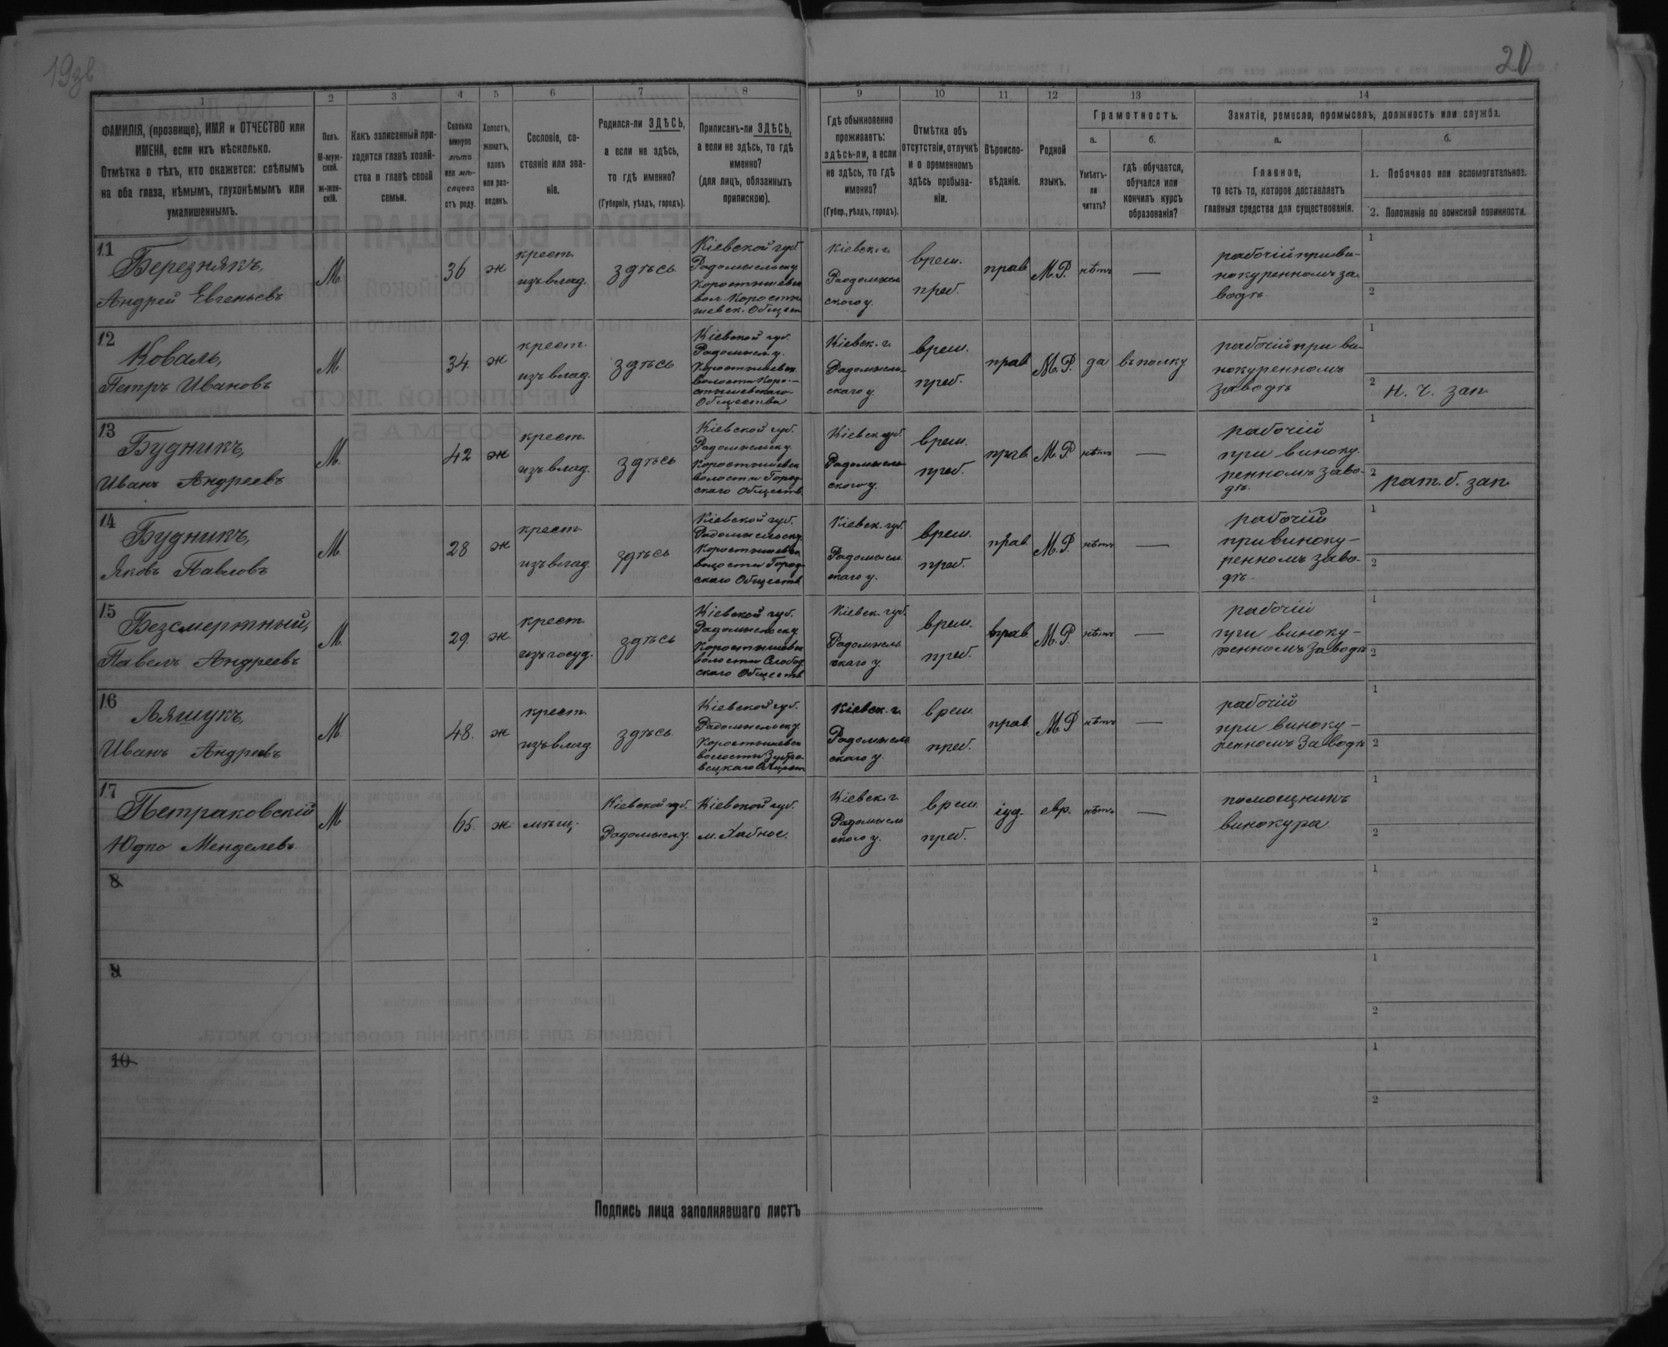 19 зв
20
1
2
3
4
5
6
7
8
9
10
11
12
13
14
ФАМИЛІЯ, (прозвище), ИМЯ и ОТЧЕСТВО или
ИМЕНА, если ихъ нѣсколько.
Отмѣтка о тѣхъ, кто окажется: слѣпымъ
на оба глаза, нѣмымъ, глухонѣмымъ или
умалишеннымъ.
Полъ.
М-муж-
ской.
Ж-жен-
скій.
Какъ записанный при-
ходится главѣ хозяй-
ства и главѣ своей
семьи.
Сколько
минуло
лѣтъ
или мѣ-
сяцевъ
отъ роду.
Холостъ,
женатъ,
вдовъ
или раз-
веденъ.
Сословіе, со-
стояніе или зва-
ніе.
Родился-ли ЗДѢСЬ,
а если не здѣсь,
то гдѣ именно?
(Губернія, уѣздъ, городъ).
Приписанъ-ли ЗДѢСЬ,
а если не здѣсь, то гдѣ
именно?
(для лицъ, обязанныхъ
припиской).
Гдѣ обыкновенно
проживаетъ:
здѣсь-ли, а если
не здѣсь, то гдѣ
именно?
(Губер., уѣздъ, городъ).
Отмѣтка объ
отсутствіи, отлучкѣ
и о временномъ
здѣсь пребыва-
ніи.
Вѣроиспо-
вѣданіе.
Родной
языкъ.
Грамотность.
а.
Умѣетъ-
ли
читать?
б.
гдѣ обучается,
обучался или
кончилъ курсъ
образованія?
Занятіе, ремесло, промыселъ, должность или служба.
а.
Главное,
то есть то, которое доставляетъ
главныя средства для существованія.
б.
1. Побочное или вспомогательное.
2. Положеніе по воинской повинности.
11
Березнякъ,
Андрей Евгеньевъ
М
36
ж
крест.
изъ влад.
здѣсь
Кіевской губ
Радомысльск у
Коростышевск
вол. Корости
шевск. Общест
Кіевск. г.
Радомысл
ского у.
врем.
преб.
прав
М.Р.
нѣтъ
—
рабочій при ви-
нокуренномъ за
водѣ
1
2
12
Коваль,
Петръ Ивановъ
М
34
ж
крест.
изъ влад.
здѣсь
Кіевской губ.
Радомысл у.
Коростышевск
волости Коро-
стышевскаго
Общества
Кіевск. г.
Радомысль
скаго у
врем.
преб.
прав
М.Р.
да
въ полку
рабочій при ви-
нокуренномъ
заводѣ
1
2 н. ч. зап
13
Будникъ,
Иванъ Андреевъ
М
42
ж
крест
изъ влад.
здѣсь
Кіевской губ.
Радомысльск у
Коростышевск
волости Город
скаго Обществ
Кіевск губ.
Радомысль
скогоу.
врем.
преб.
прав
М.Р
нѣтъ
—
рабочій
при виноку
ренномъ заво-
дѣ.
2 рат. б. зап
14
Будникъ,
Яковъ Павловъ
М
28
ж
крест
изъ влад
здѣсь
Кіевской губ.
Радомысльск у
Коростышевск
волости Город
скаго Обществ
Кіевск. губ.
Радомысл
скаго у.
врем.
преб.
прав
М.Р.
нѣтъ
—
рабочій
при виноку-
ренномъ заво-
дѣ.
1
2
15
Безсмертный,
Павелъ Андреевъ
М
29
ж
крест
изъ госуд.
здѣсь
Кіевской губ.
Радомысльск у
Коростышевск
волости Слобод
скаго Обществ
Кіевск. губ.
Радомысль
скаго у
врем.
преб.
прав
М.Р.
нѣтъ
—
рабочій
при виноку-
ренномъ заводѣ
1
2
16
Ляшукъ,
Иванъ Андреевъ
М
48.
ж
крест
изъ влад
здѣсь
Кіевской губ.
Радомысльск у
Коростышевск
волости
Кіевск. г.
Радомысль
скаго у.
врем.
преб.
прав
М.Р
нѣтъ
—
рабочій
при виноку-
ренномъ заводѣ
1
2
17
Петраковскій
Юдко Менделевъ
М
65.
ж
мѣщ.
Кіевской губ.
Радомысл у.
Кіевской губ.
м. Хабное.
Кіевск. г
Радомысл
ского у.
врем
преб.
іуд.
евр.
нѣтъ
—
помощникъ
винокура
1
2
8
1
2
9
1
2
10
1
2
Подпись лица заполнявшаго листъ